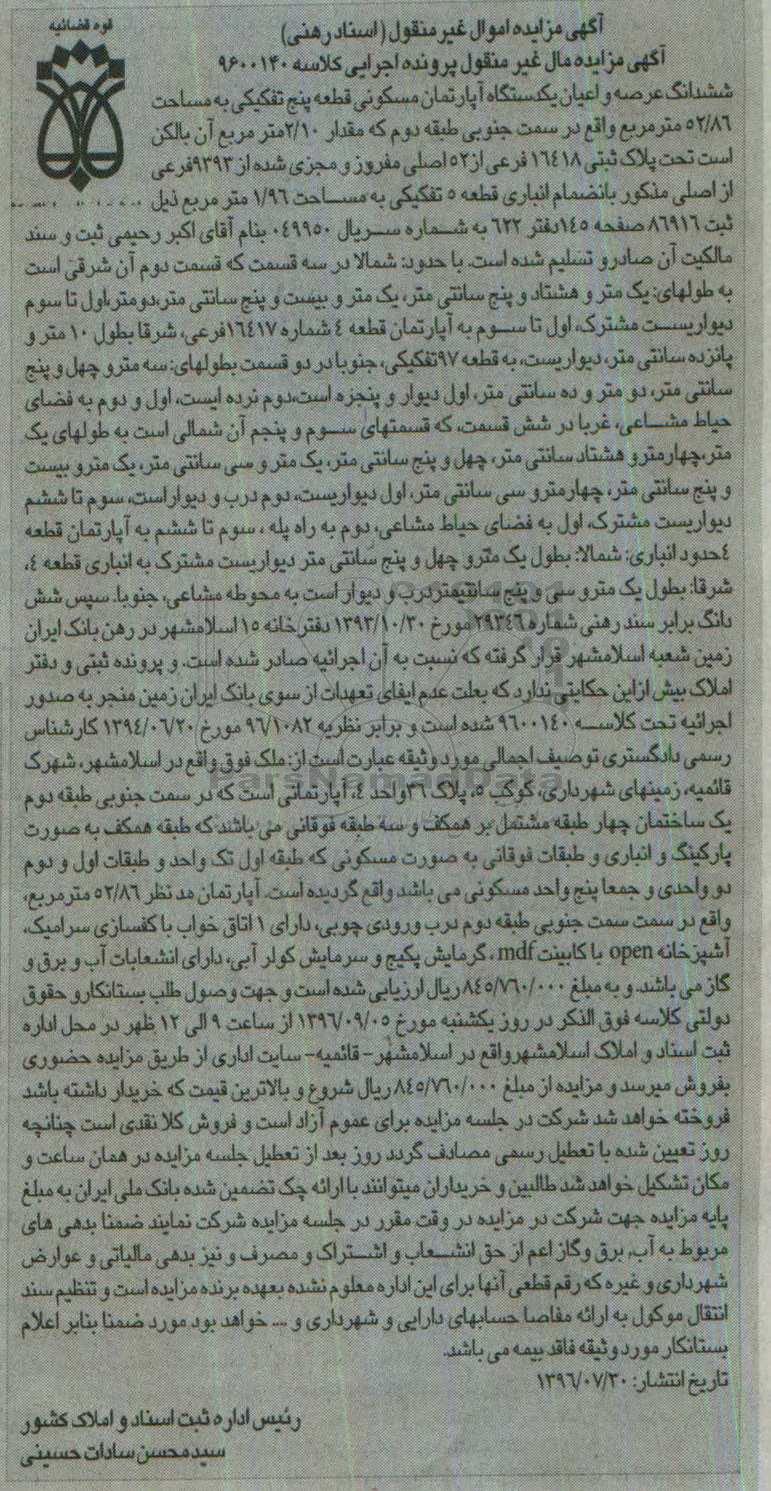 قوه قضائیه
آگهی مزایده اموال غیر منقول (اسناد رهنی)
آگهی مزایده مال غیر منقول پرونده اجرایی کلاسه ۹۶۰۰۱۴۰
ششدانگ عرصه و اعیان یکدستگاه آپارتمان مسکونی قطعه پنج تفکیکی به مساحت
۵۲/۸۶ مترمربع واقع در سمت جنوبی طبقه دوم که مقدار ۲/۱۰متر مربع آن بالکن
است تحت پلاک ثبتی ۱۶۴۱۸ فرعی از۵۲ اصلی مفروز و مجزی شده از۹۳۹۳فرعی
از اصلی مذکور بانضمام انباری قطعه ۵ تفکیکی به مساحت ۱/۹۶ متر مربع ذیل
ثبت ۸۶۹۱۶ صفحه ۱۴۵دفتر ۶۲۲ به شماره سریال ۰۴۹۹۵۰ بنام آقای اکبر رحیمی ثبت و سند
مالکیت آن صادرو تسلیم شده است. با حدود: شمالا در سه قسمت که قسمت دوم آن شرقی است
به طولهای: یک متر و هشتاد و پنج سانتی متر، یک متر و بیست و پنج سانتی متر،دومتر،اول تا سوم
دیواریست مشترک، اول تا سوم به آپارتمان قطعه ٤ شماره ۱۶۴۱۷فرعی، شرقا بطول ۱۰ متر و
پانزده سانتی متر، دیواریست، به قطعه ۹۷تفکیکی، جنوبا در دو قسمت بطولهای: سه مترو چهل و پنج
سانتی متر، دو متر و ده سانتی متر، اول دیوار و پنجره است،دوم نرده ایست، اول و دوم به فضای
حیاط مشاعی، غربا در شش قسمت، که قسمتهای سوم و پنجم آن شمالی است به طولهای یک
متر،چهارمترو هشتاد سانتی متر، چهل و پنج سانتی متر، یک متر و سی سانتی متر، یک مترو بیست
و پنج سانتی متر، چهارمترو سی سانتی متر، اول دیواریست، دوم درب و دیوار است، سوم تا ششم
دیواریست مشترک، اول به فضای حیاط مشاعی، دوم به راه پله ، سوم تا ششم به آپارتمان قطعه
٤حدود انباری: شمالا: بطول یک مترو چهل و پنج سانتی متر دیواریست مشترک به انباری قطعه ٤،
شرقا: بطول یک مترو سی و پنج سانتیمتردرب و دیوار است به محوطه مشاعی، جنوبا. سپس شش
دانگ برابر سند رهنی شماره ۲۹۳۴۶مورخ ۱۳۹۳/۱۰/۳۰ دفترخانه ۱۵ اسلامشهر در رهن بانک ایران
زمین شعبه اسلامشهر قرار گرفته که نسبت به آن اجرائیه صادر شده است. و پرونده ثبتی و دفتر
املاک بیش ازاین حکایتی ندارد که بعلت عدم ایفای تعهدات از سوی بانک ایران زمین منجر به صدور
اجرائیه تحت کلاسه ۹۶۰۰۱۴۰ شده است و برابر نظریه ۹۶/۱۰۸۲ مورخ ۱۳۹۴/۰۶/۲۰ کارشناس
رسمی دادگستری توصیف اجمالی مورد وثیقه عبارت است از: ملک فوق واقع در اسلامشهر، شهرک
قائمیه، زمینهای شهرداری، کوکب ۵، پلاک ۳۶واحد ٤، آپارتمانی است که در سمت جنوبی طبقه دوم
یک ساختمان چهار طبقه مشتمل بر همکف و سه طبقه فوقانی می باشد که طبقه همکف به صورت
پارکینگ و انباری و طبقات فوقانی به صورت مسکونی که طبقه اول تک واحد و طبقات اول و دوم
دو واحدی و جمعا پنج واحد مسکونی می باشد واقع گردیده است. آپارتمان مد نظر ۵۲/۸۶ مترمربع،
واقع در سمت سمت جنوبی طبقه دوم درب ورودی چوبی، دارای ۱ اتاق خواب با کفسازی سرامیک،
آشپزخانه open با کابینت mdf ، گرمایش پکیج و سرمایش کولر آبی، دارای انشعابات آب و برق و
گاز می باشد. و به مبلغ ۸۴۵/۷۶۰/۰۰۰ ریال ارزیابی شده است و جهت وصول طلب بستانکارو حقوق
دولتی کلاسه فوق الذکر در روز یکشنبه مورخ ۱۳۹۶/۰۹/۰۵ از ساعت ۹ الی ۱۲ ظهر در محل اداره
ثبت اسناد و املاک اسلامشهرواقع در اسلامشهر- قائمیه- سایت اداری از طریق مزایده حضوری
بفروش میرسد و مزایده از مبلغ ۸۴۵/۷۶۰/۰۰۰ ریال شروع و بالاترین قیمت که خریدار داشته باشد
فروخته خواهد شد شرکت در جلسه مزایده برای عموم آزاد است و فروش کلا نقدی است چنانچه
روز تعیین شده با تعطیل رسمی مصادف گردد روز بعد از تعطیل جلسه مزایده در همان ساعت و
مکان تشکیل خواهد شد طالبین و خریداران میتوانند با ارائه چک تضمین شده بانک ملی ایران به مبلغ
پایه مزایده جهت شرکت در مزایده در وقت مقرر در جلسه مزایده شرکت نمایند ضمنا بدهی های
مربوط به آب, برق وگاز اعم از حق انشعاب و اشتراک و مصرف و نیز بدهی مالیاتی و عوارض
شهرداری و غیره که رقم قطعی آنها برای این اداره معلوم نشده بعهده برنده مزایده است و تنظیم سند
انتقال موکول به ارائه مفاصا حسابهای دارایی و شهرداری و .... خواهد بود مورد ضمنا بنابر اعلام
بستانکار مورد وثیقه فاقد بیمه می باشد.
تاریخ انتشار: ۱۳۹۶/۰۷/۳۰
رئیس اداره ثبت اسناد و املاک کشور
سید محسن سادات حسینی
ParsNamadData